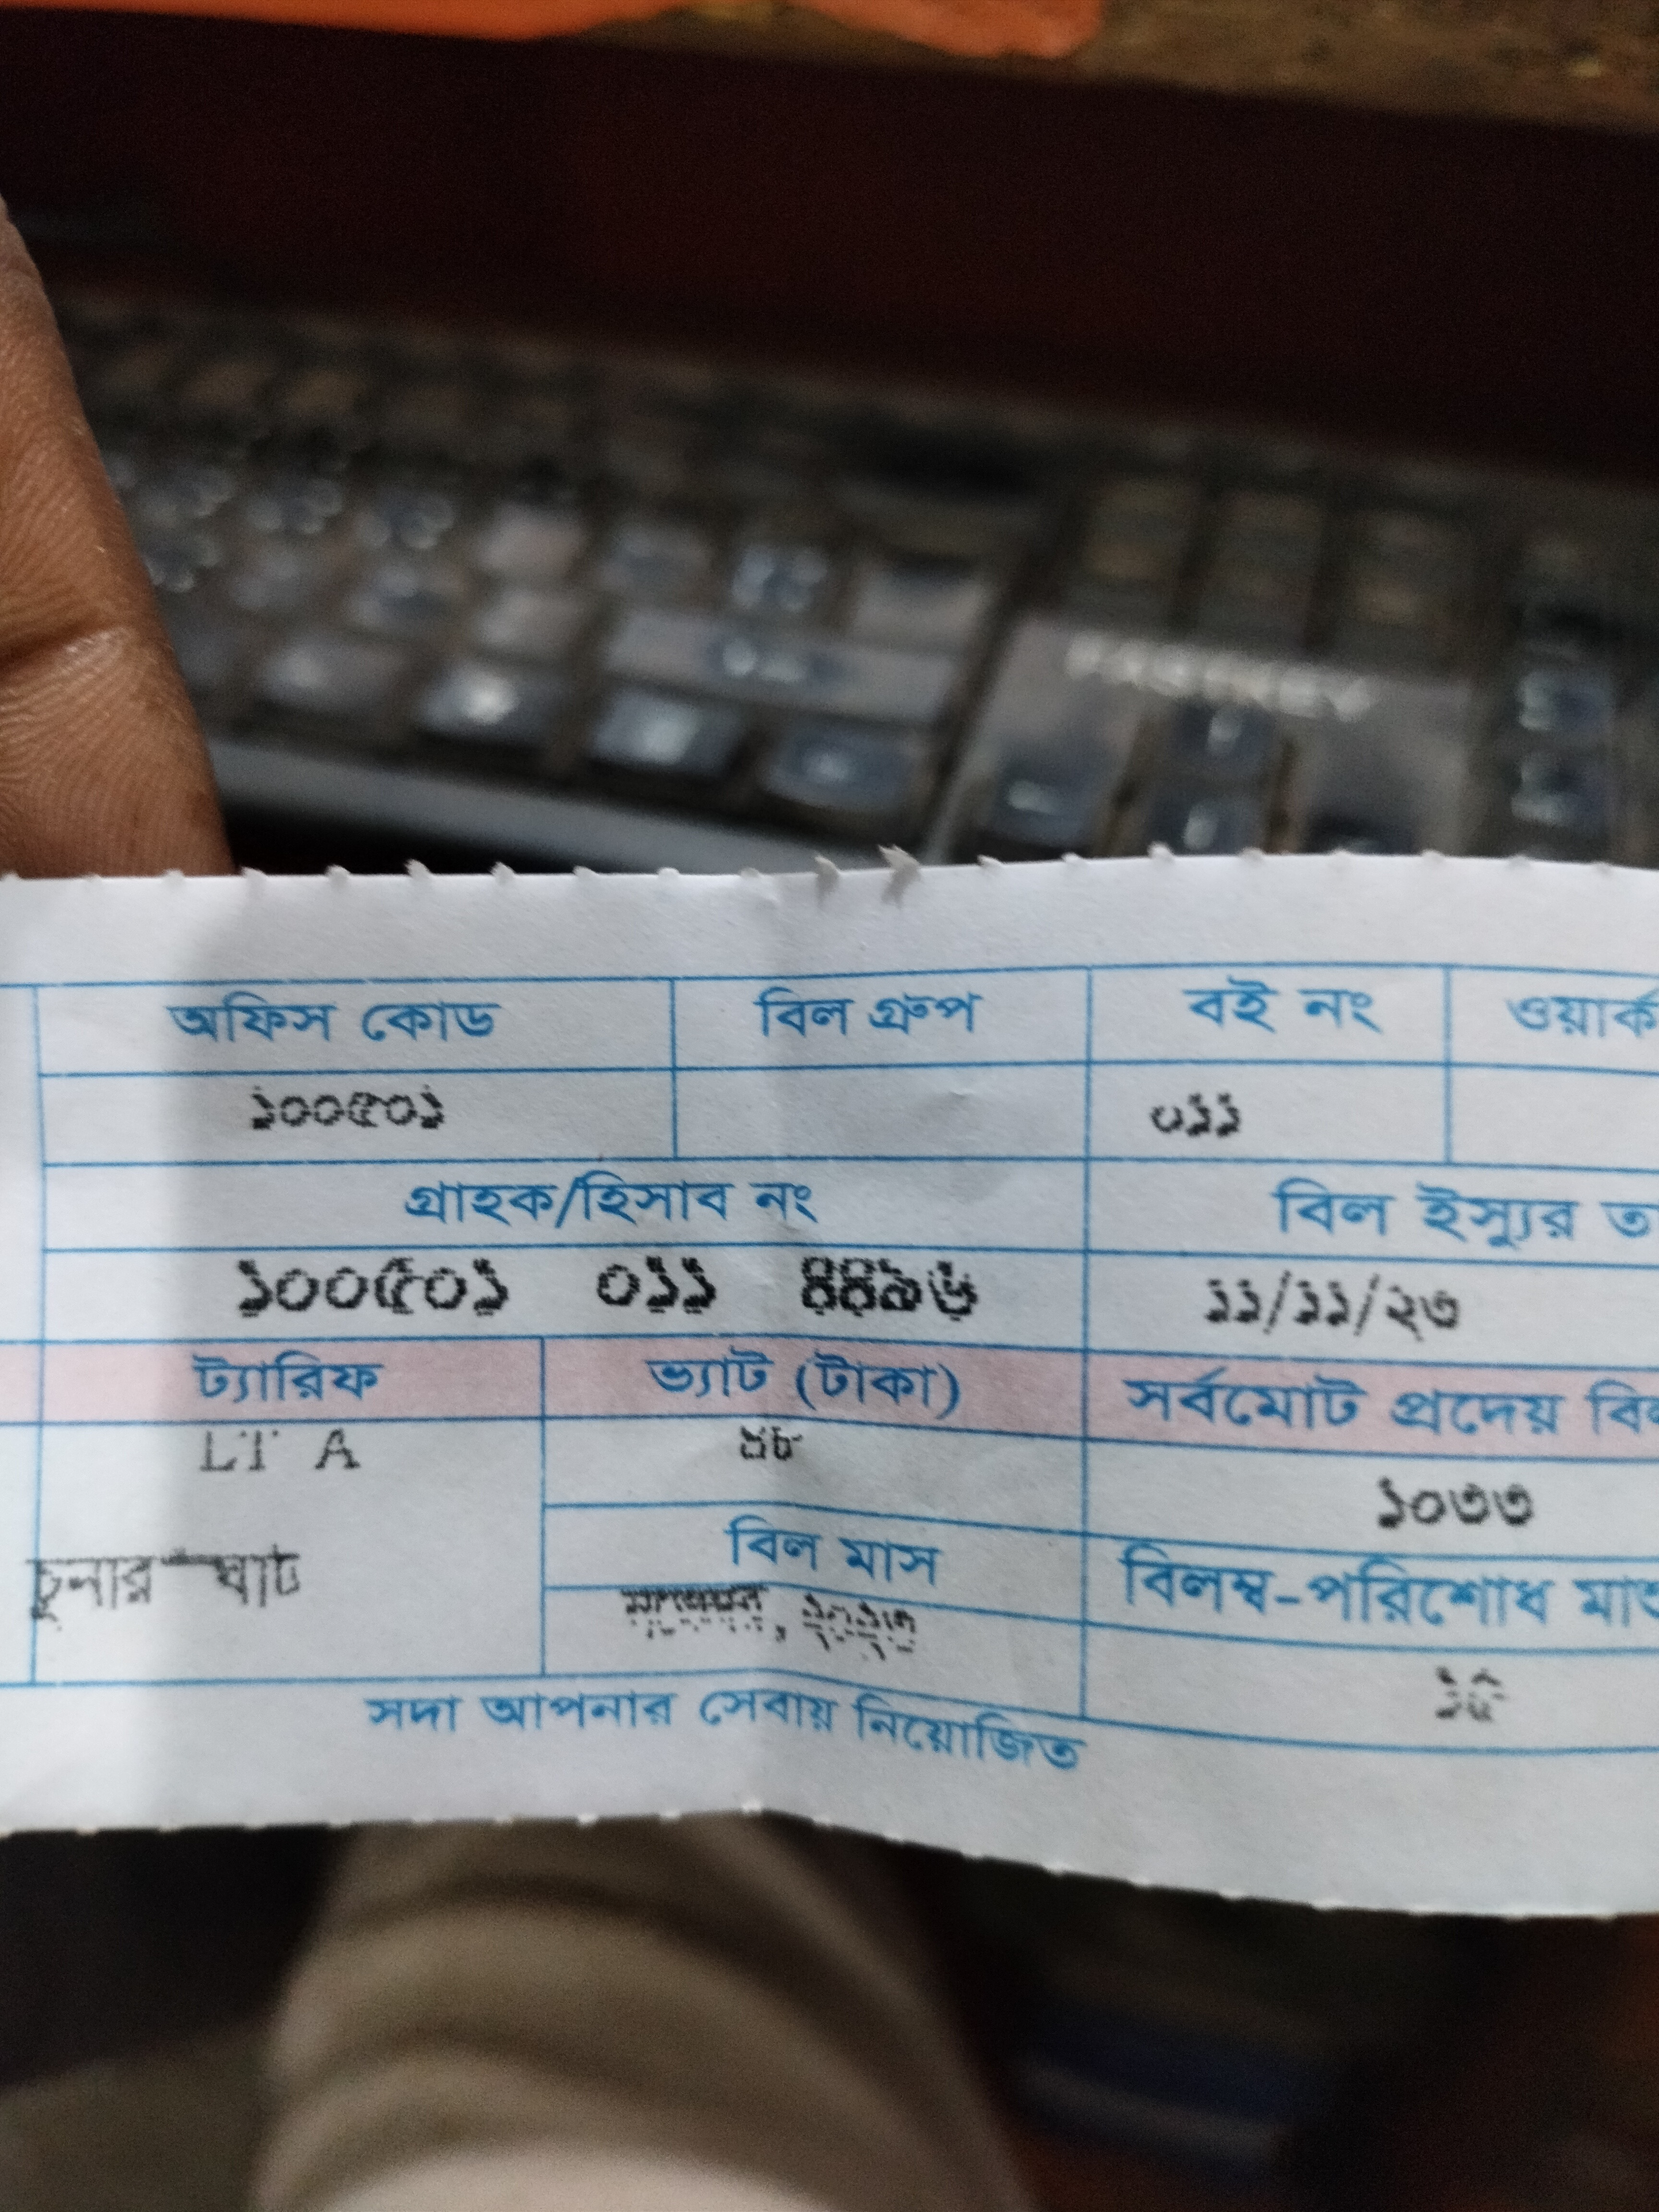 অফিস কোড বিল গ্রুপ বই নং ওয়ার্ক
১০০৫০১ ০১১
গ্রাহক/হিসাব নং বিল ইস্যুর ত
১০০৫০১ ০১১ ৪৪৯৬ ১১/১১/২৩
ট্যারিফ ভ্যাট (টাকা) সর্বমোট প্রদেয় বিল
LT A ৪৮ ১০৩৩
বিল মাস বিলম্ব-পরিশোধ মাশু
চুনারুঘাট
সদা আপনার সেবায় নিয়োজিত